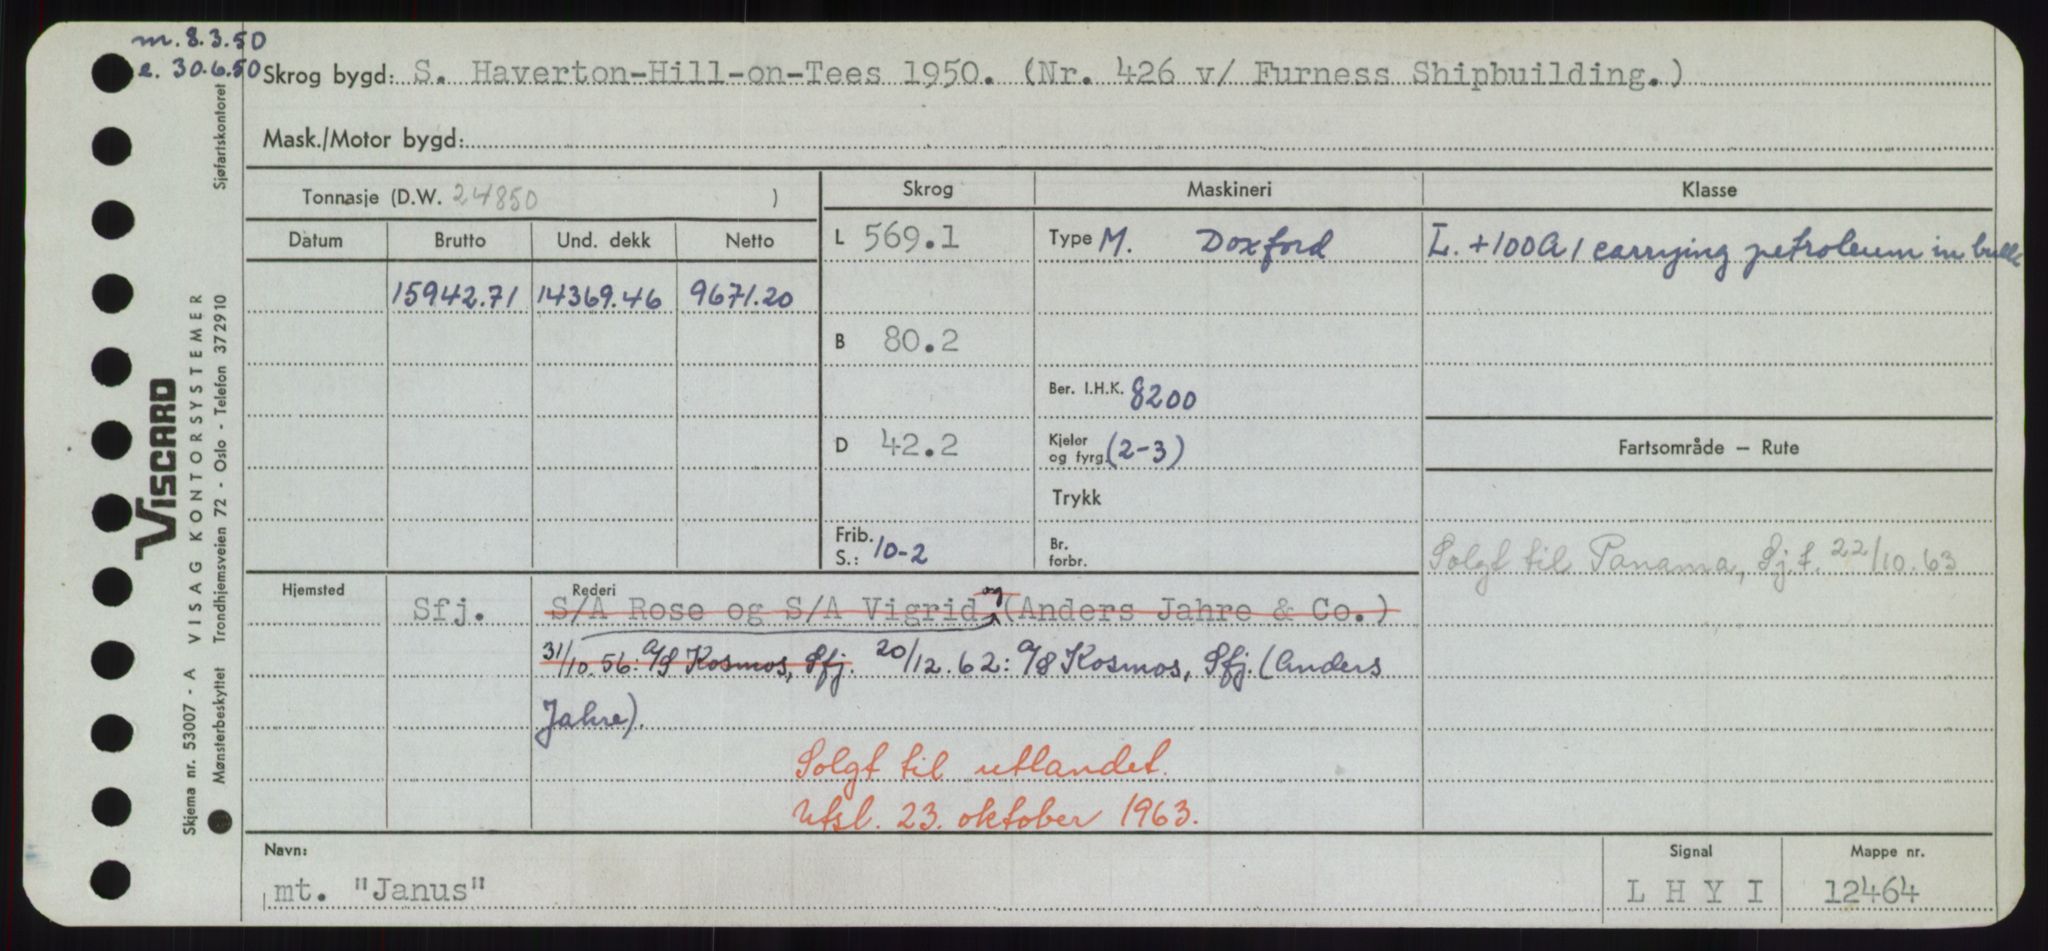 m. 8.3.50
e. 30.6.50
Skrog bygd: S. Haverton-Hill-on-Tees 1950. (Nr. 426 v/ Furness Shipbuilding.)
Mask./Motor bygd:
Tonnasje (D.W. 24850 )
Skrog Maskineri Klasse
Datum Brutto Und. dekk Netto
L 569.1 Type M. Doxford L. +100A1 carrying petroleum in bulk
15942.71 14369.46 9671.20
B 80.2
Ber. I.H.K. 8200
D 42.2 Kjeler og fyrg. (2-3)
Fartsområde — Rute
Trykk
Frib. S.: 10-2 Br. forbr.
Solgt til Panama, Sj.f. 22/10.63
Hjemsted Rederi
Sfj. S/A Rose og S/A Vigrid og (Anders Jahre & Co.)
31/10.56: A/S Kosmos, Sfj. 20/12.62: A/S Kosmos, Sfj. (Anders
Jahre).
Solgt til utlandet.
Utsl. 23. oktober 1963.
Navn: Signal Mappe nr.
mt. "Janus" L H Y I 12464
VISCARD
Skjema nr. 53007 - A VISAG KONTORSYSTEMER
Mønsterbeskyttet Trondhjemsveien 72 - Oslo - Telefon 372910 Sjøfartskontoret